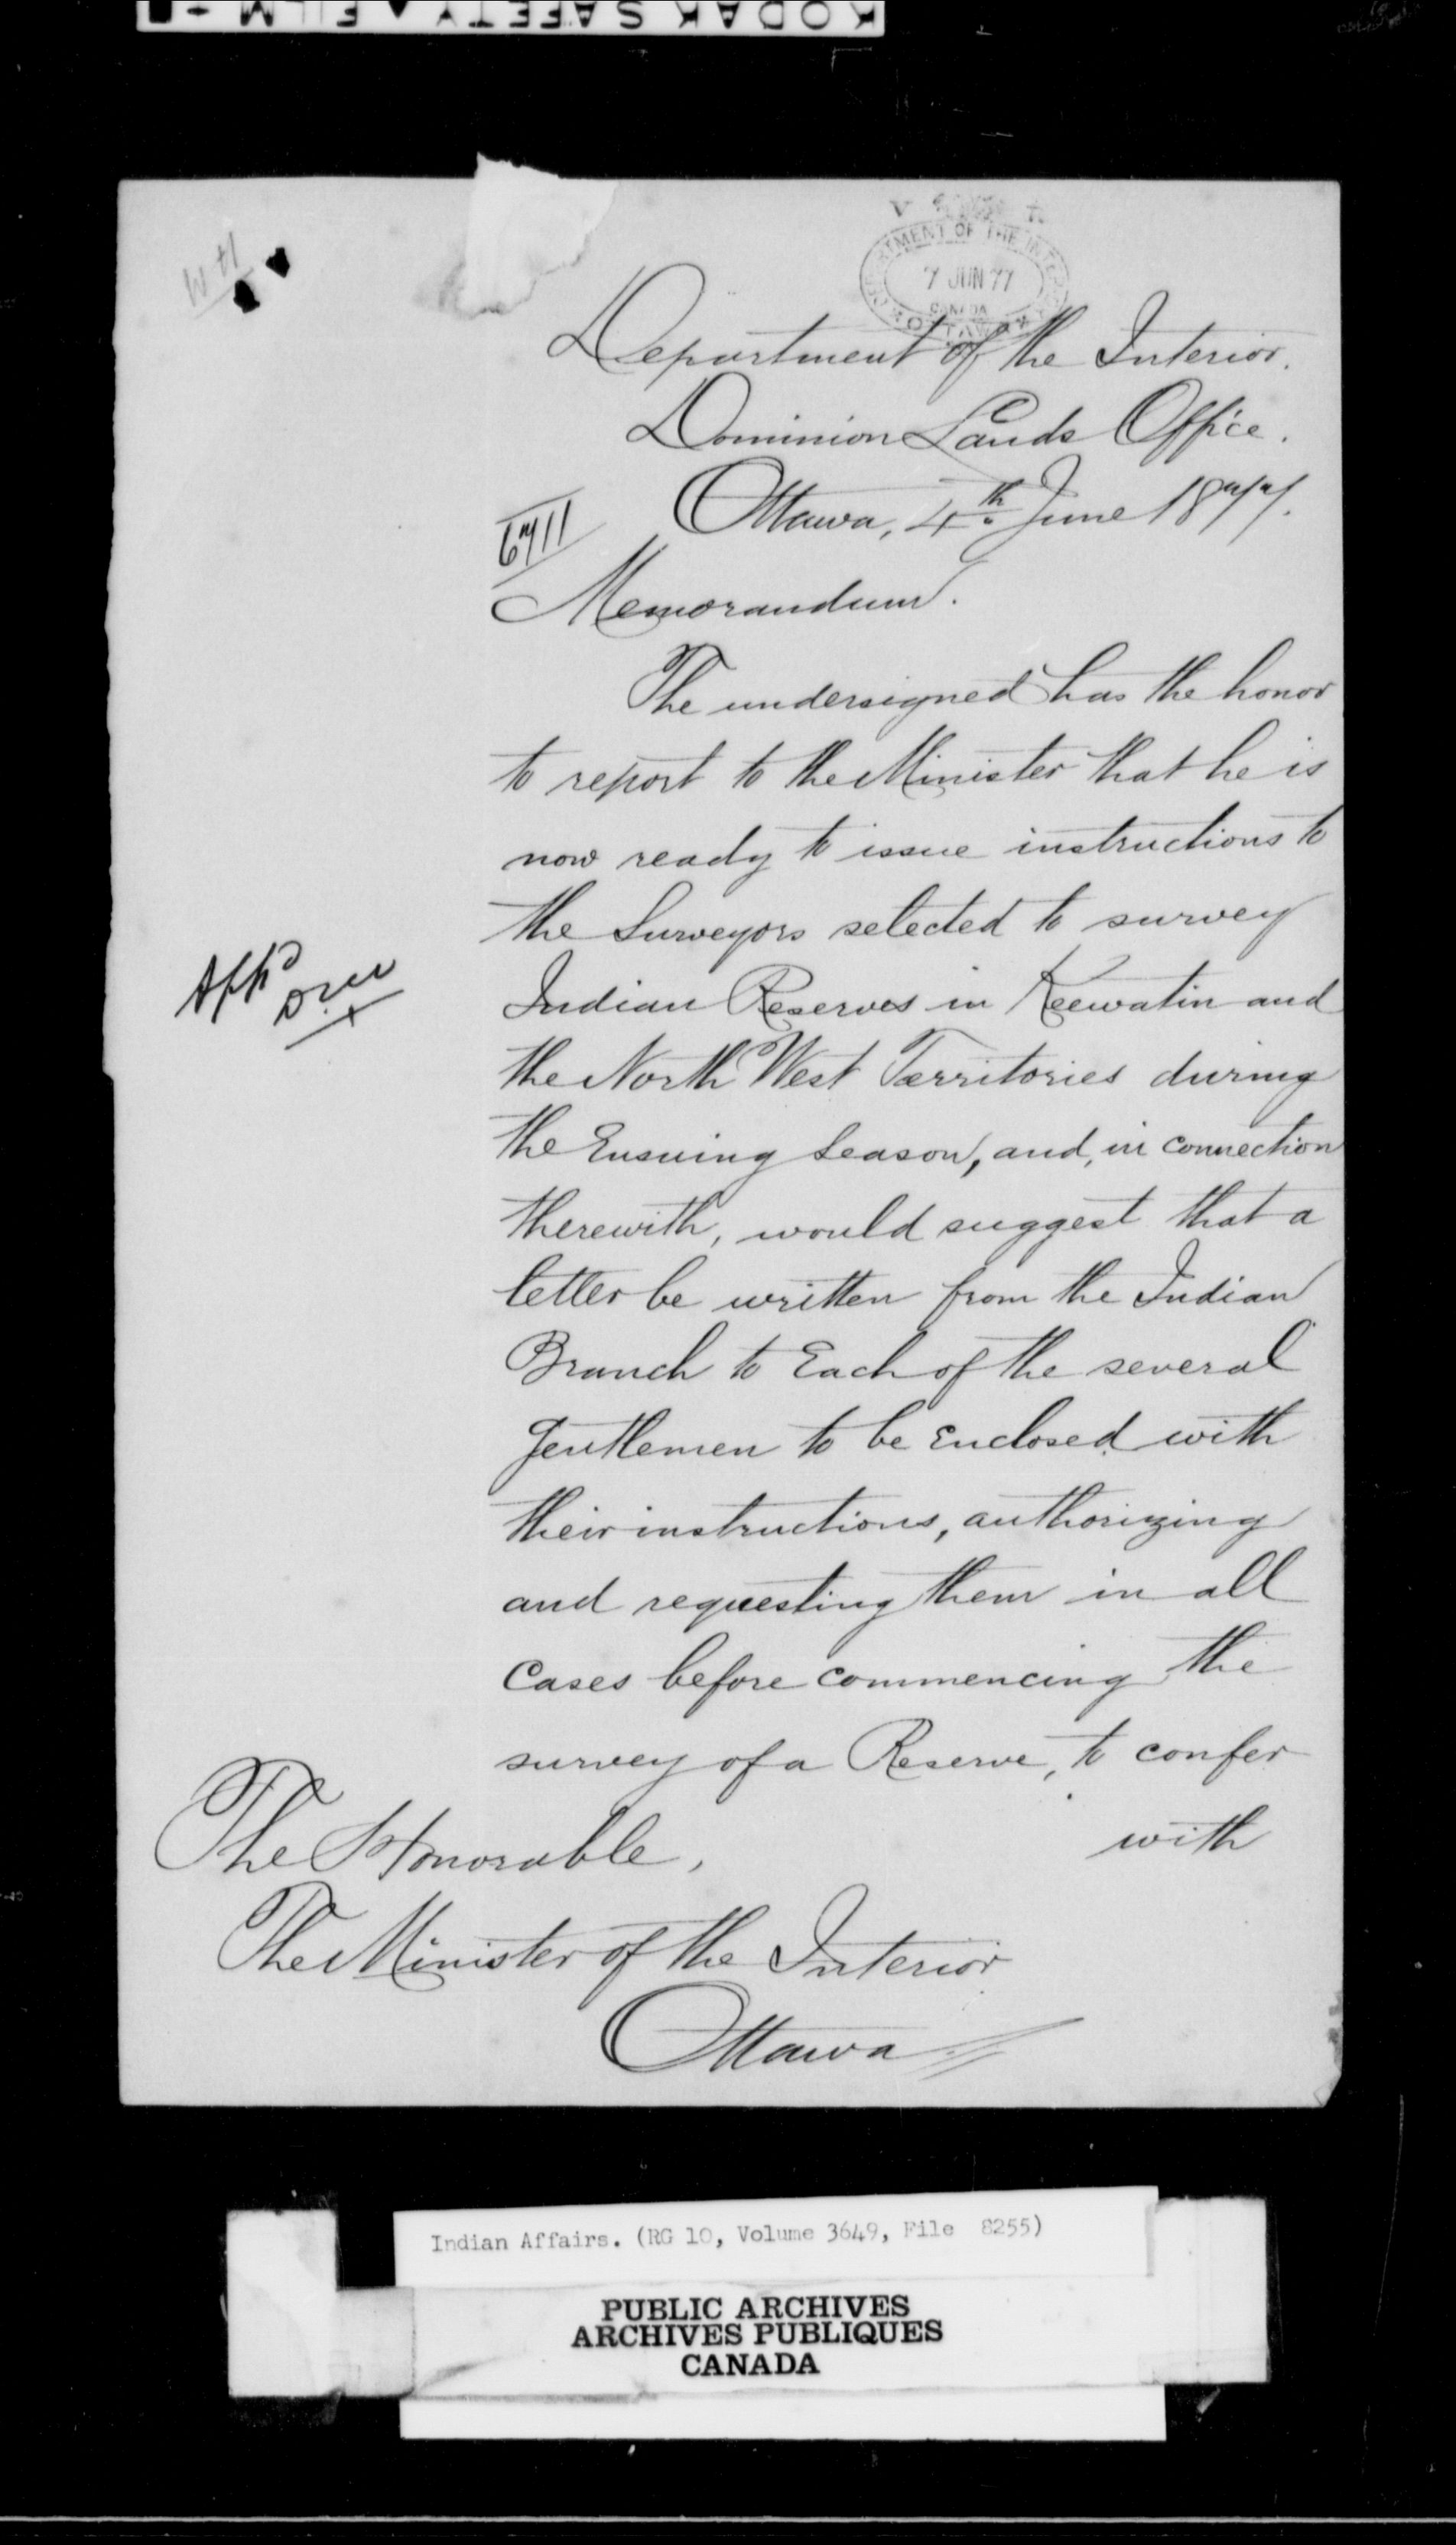 KODAK SAFETY FILM
DEPARTMENT OF THE INTERIOR
7 JUN 77
CANADA
OTTAWA
Department of the Interior.
Dominion Lands Office.
Ottawa, 4th June 1877.
6711
Memorandum.
The undersigned has the honor
to report to the Minister that he is
now ready to issue instructions to
the Surveyors selected to survey
Indian Reserves in Keewatin and
the North West Territories during
the Ensuing Season, and, in connection
therewith, would suggest that a
letter be written from the Indian
Branch to Each of the several
Gentlemen to be Enclosed with
their instructions, authorizing
and requesting them in all
Cases before commencing the
survey of a Reserve, to confer
with
Appd
D.M
The Honorable,
The Minister of the Interior
Ottawa
Indian Affairs. (RG 10, Volume 3649, File 8255)
PUBLIC ARCHIVES
ARCHIVES PUBLIQUES
CANADA